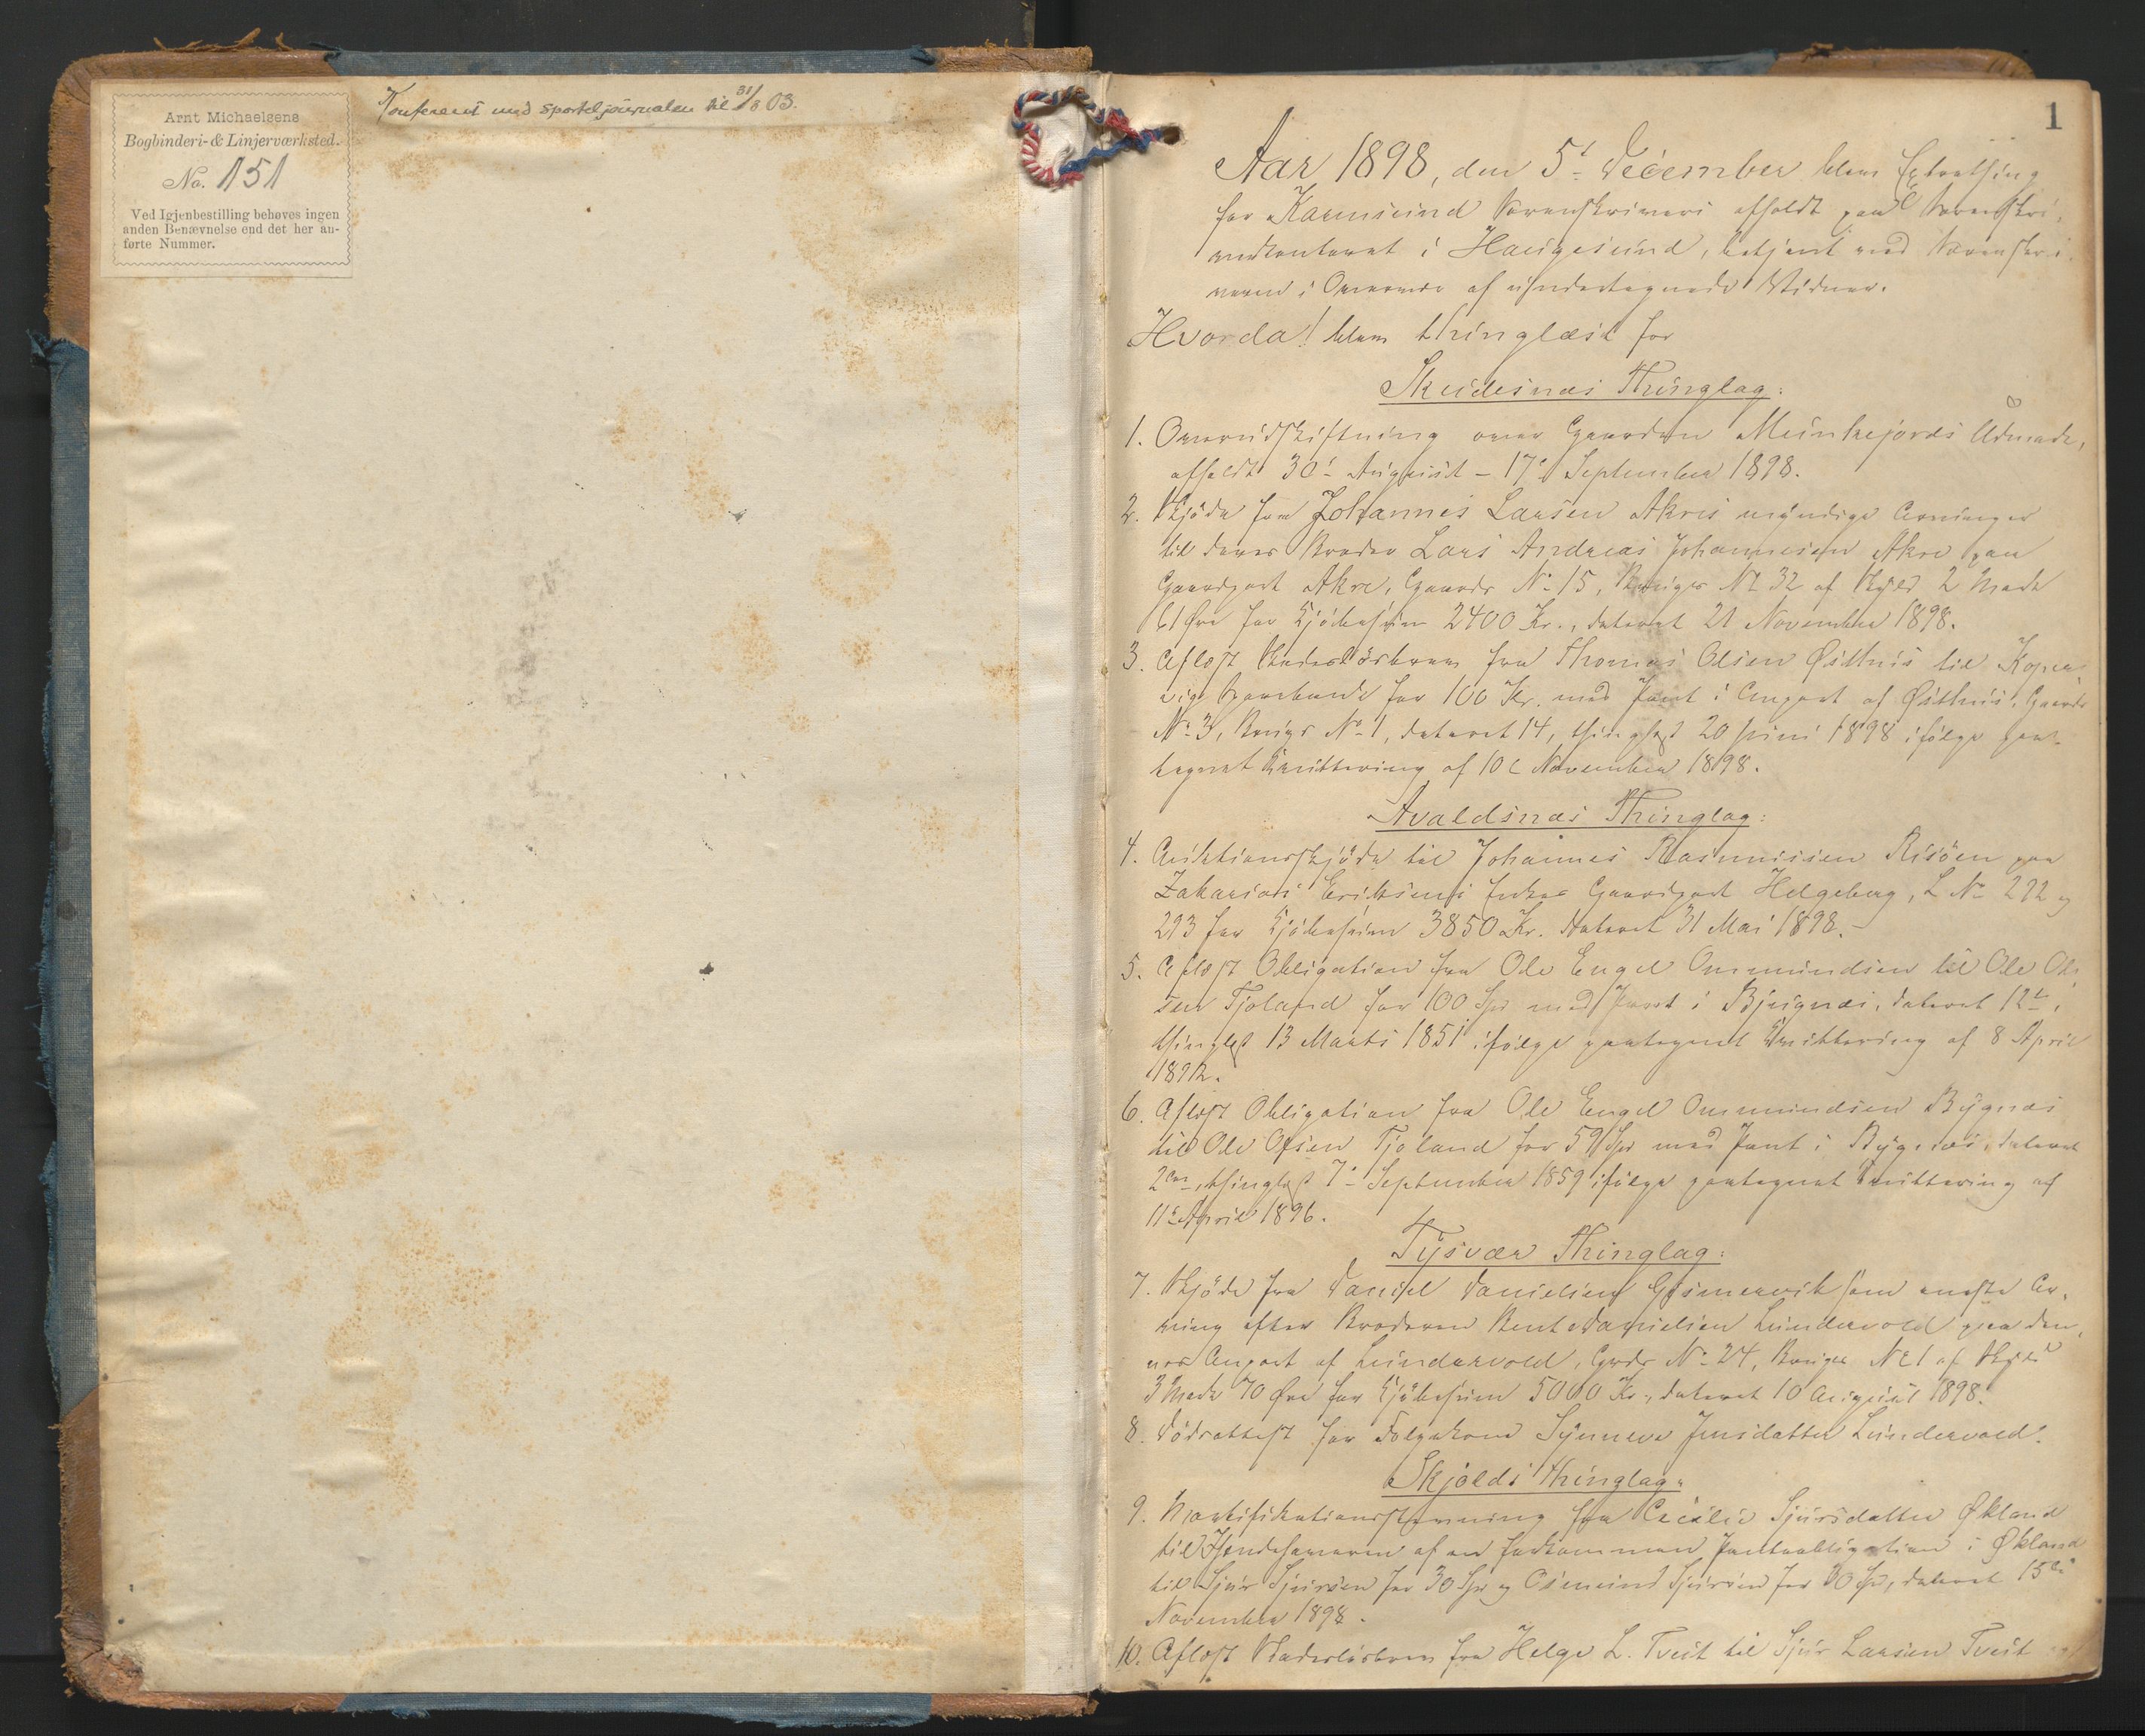 Arnt Michaelsens
Bogbinderi- & Linjerværksted.
No. 151
Ved Igjenbestilling behøves ingen
anden Benævnelse end det her an-
førte Nummer.
Konfereret med sporteljournalen til 31/8 03.
1
Aar 1898, den 5t December blev Extrathing
for Karmsund Sorenskriveri afholdt paa Sorenskri-
verkontoret i Haugesund, betjent med Sorenskri-
veren i Overvær af undertegnede Vidner.
Hvorda! blev thinglæst for
Skudesnæs Thinglag:
1. Overudskiftning over Gaarden Munkejords Udmark,
afholdt 30t August – 17t September 1898.
2. Skjöde fra Johannes Larsen Akres myndige Arvinger
til deres Broder Lars Andreas Johannesen Akre paa
Gaardpart Akre, Gaards No 15, Brugs No 32 af Skyld 2 Mark
61 Øre for Kjöbesum 2400 Kr., dateret 21 November 1898.
3. Aflæst Skadeslösbrev fra Thomas Olsen Østhus til Koper-
vig Sparebank for 100 Kr. med Pant i Anpart af Østhus, Gaards
No 3, Brugs No 1, dateret 14, thinglæst 20 Juni 1898 ifölge paa-
tegnet Kvittering af 10 November 1898.
Avaldsnæs Thinglag:
4. Auktionsskjöde til Johannes Rasmussen Risöen paa
Zakarias Eriksens Enkes Gaardpart Helgeberg, L No 292 og
293 for Kjöbesum 3850 Kr. dateret 31 Mai 1898.
5. Aflæst Obligation fra Ole Engel Ommundsen til Ole Ol-
sen Tjoland for 100 Spd med Pant i Bjugnæs, dateret 12t,
thinglæst 13 Marts 1851 ifölge paategnet Kvittering af 8 April
1892.
6. Aflæst Obligation fra Ole Engel Ommundsen Bygnæs
til Ole Olsen Tjoland for 59 Spd med Pant i Bygnæs, dateret
2den, thinglæst 7t September 1859 ifölge paategnet Kvittering af
11t April 1896.
Tysvær Thinglag:
7. Skjöde fra Daniel Danielsen Gismervik som eneste Ar-
ving efter Broderen Bent Danielsen Lundervold paa den-
nes Anpart af Lundervold, Gards No 24, Brugs No 1 af Skyld
3 Mark 70 Øre for Kjöbesum 5000 Kr., dateret 10 August 1898.
8. Dödsattest for Folgekone Synneve Jensdatter Lundervold.
Skjolds Thinglag:
9. Mortifikationsstevning fra Cecilie Sjursdatter Økland
til Ihændehaveren af en forkommen Panteobligation i Økland
til Sjur Sjursen for 30 Spd og Osmund Sjursen for Spd, dateret 15de
November 1898.
10. Aflæst Skadeslösbrev fra Helge L. Tveit til Sjur Larsen Tveit